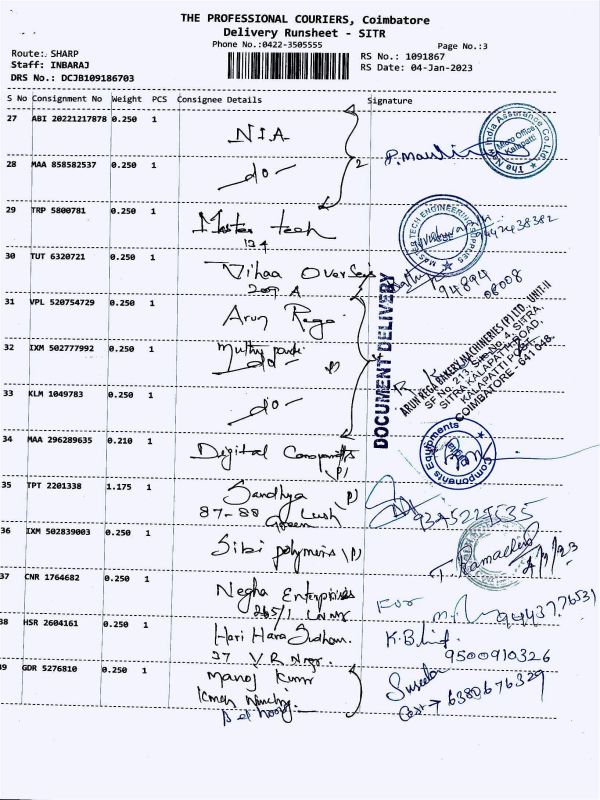 THE PROFESSIONAL COURIERS, Coimbatore
Delivery Runsheet - SITR
Phone No.:0422-3505555
Page No.:3
Route: SHARP
RS No.: 1091867
Staff: INBARAJ
RS Date: 04-Jan-2023
DRS No.: DCJB109186703
S No Consignment No Weight PCS Consignee Details Signature
27 ABI 20221217878 0.250 1 NIA
The New India Assurance Co. Ltd.
Micro Office
Kalapatti
28 MAA 858582537 0.250 1 -do- 2
29 TRP 5800781 0.250 1 Master tech
MASTER TECH ENGINEERING SUPPLIES
9442438382
30 TUT 6320721 0.250 1 Vihaa Overseis
209 A
94894
08008
DOCUMENT DELIVERY
31 VPL 520754729 0.250 1 Arun Rega
ARUN REGA BAKERY MACHINERIES (P) LTD., UNIT-II
SF No. 213, Site No. 4, SITRA,
SITRA KALAPATTI ROAD,
KALAPATTI POST,
COIMBATORE - 641 048.
32 IXM 502777992 0.250 1
-do-
33 KLM 1049783 0.250 1 -do-
34 MAA 296289635 0.210 1 Digital Components
Components Equipments
35 TPT 2201338 1.175 1 Sandhya
87-88 Lush
Green
9245227535
36 IXM 502839003 0.250 1 Sibi polymers
37 CNR 1764682 0.250 1 Negha Enterprises
265/1
For
9443776531
38 HSR 2604161 0.250 1 Hari Hara Sudhan.
37 V R Nagr.
K.B.
9500910326
39 GDR 5276810 0.250 1 Manoj Kumr
6380676329